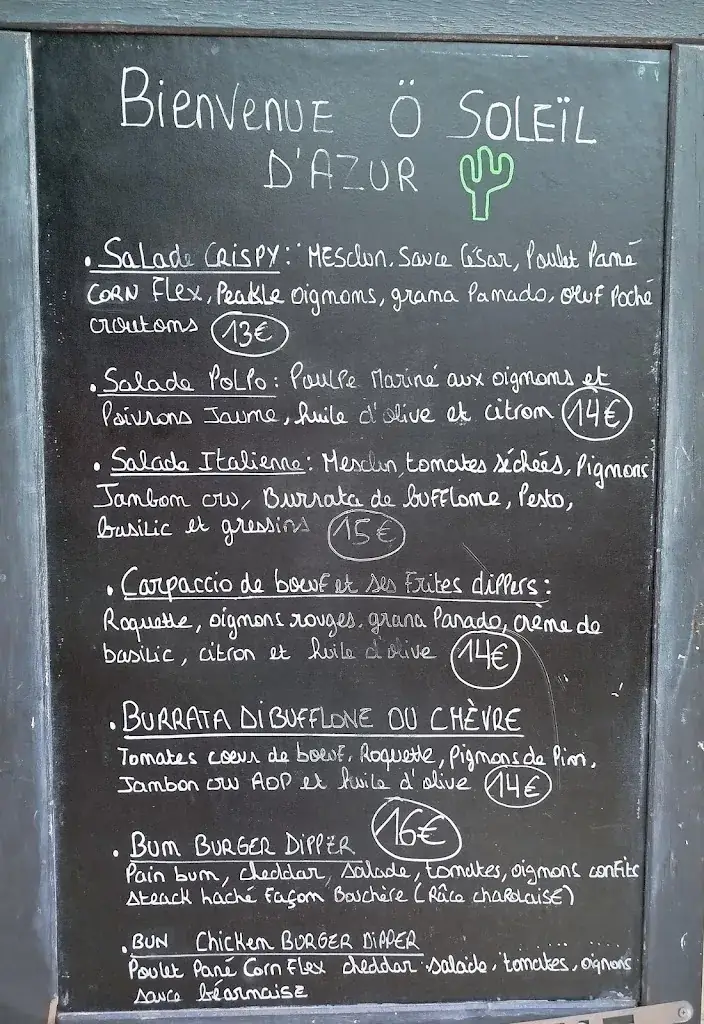 Bienvenue Ö SOLEÏL
D'AZUR
• Salade CRISPY : MESclun, Sauce César, Poulet Pané
CORN Flex, Peakle oignons, grana Pamado, œuf Poché
croutons 13€
• Salade POLPO : Poulpe Mariné aux oignons et
Poivrons Jaune, huile d'olive et citron 14€
• Salade Italienne : Mesclun, tomates séchées, Pignons
Jambon cru, Burrata de bufflone, Pesto,
basilic et gressins 15€
• Carpaccio de boeuf et ses Frites dippers :
Roquette, oignons rouges, grana Panado, crème de
basilic, citron et huile d'olive 14€
• BURRATA DI BUFFLONE OU CHÈVRE
Tomates coeur de boeuf, Roquette, Pignons de Pin,
Jambon cru AOP et huile d'olive 14€
• BUM BURGER DIPPER 16€
Pain bum, cheddar, salade, tomates, oignons confits
Steack haché Façon Bouchère (Râce charolaise)
• BUN Chicken BURGER DIPPER
Poulet Pané Corn Flex cheddar salade, tomates, oignons
sauce béarnaise